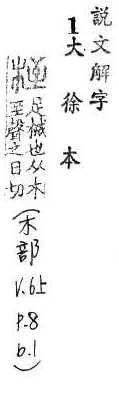 說文解字
1大徐本
桎
足械也从木
至聲之日切
(木部 V.6上 P.8 b.1)